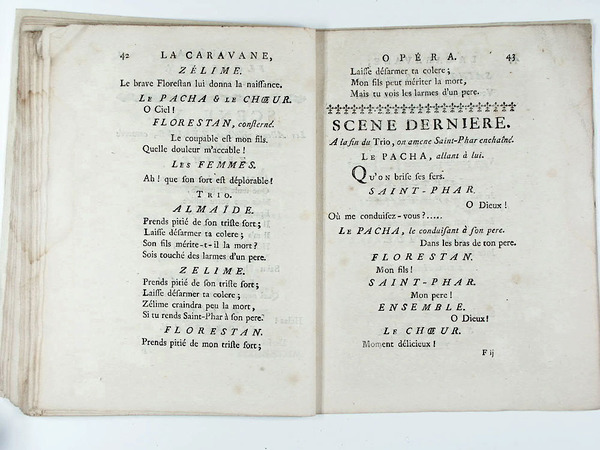 42 LA CARAVANE,
ZÉLIME.
Le brave Florestan lui donna la naissance.
LE PACHA & LE CHŒUR.
O Ciel !
FLORESTAN, consterné.
Le coupable est mon fils.
Quelle douleur m'accable !
LES FEMMES.
Ah ! que son sort est déplorable !
TRIO.
ALMAÏDE.
Prends pitié de son triste sort ;
Laisse désarmer ta colere ;
Son fils mérite-t-il la mort ?
Sois touché des larmes d'un pere.
ZELIME.
Prends pitié de son triste sort ;
Laisse désarmer ta colere ;
Zélime craindra peu la mort,
Si tu rends Saint-Phar à son pere.
FLORESTAN.
Prends pitié de mon triste sort ;
OPÉRA. 43
Laisse désarmer ta colere ;
Mon fils peut mériter la mort,
Mais tu vois les larmes d'un pere.
SCENE DERNIERE.
A la fin du Trio, on amene Saint-Phar enchaîné.
LE PACHA, allant à lui.
Qu'on brise ses fers.
SAINT-PHAR.
O Dieux !
Où me conduisez-vous ?.....
LE PACHA, le conduisant à son pere.
Dans les bras de ton pere.
FLORESTAN.
Mon fils !
SAINT-PHAR.
Mon pere !
ENSEMBLE.
O Dieux !
LE CHŒUR.
Moment délicieux !
F ij